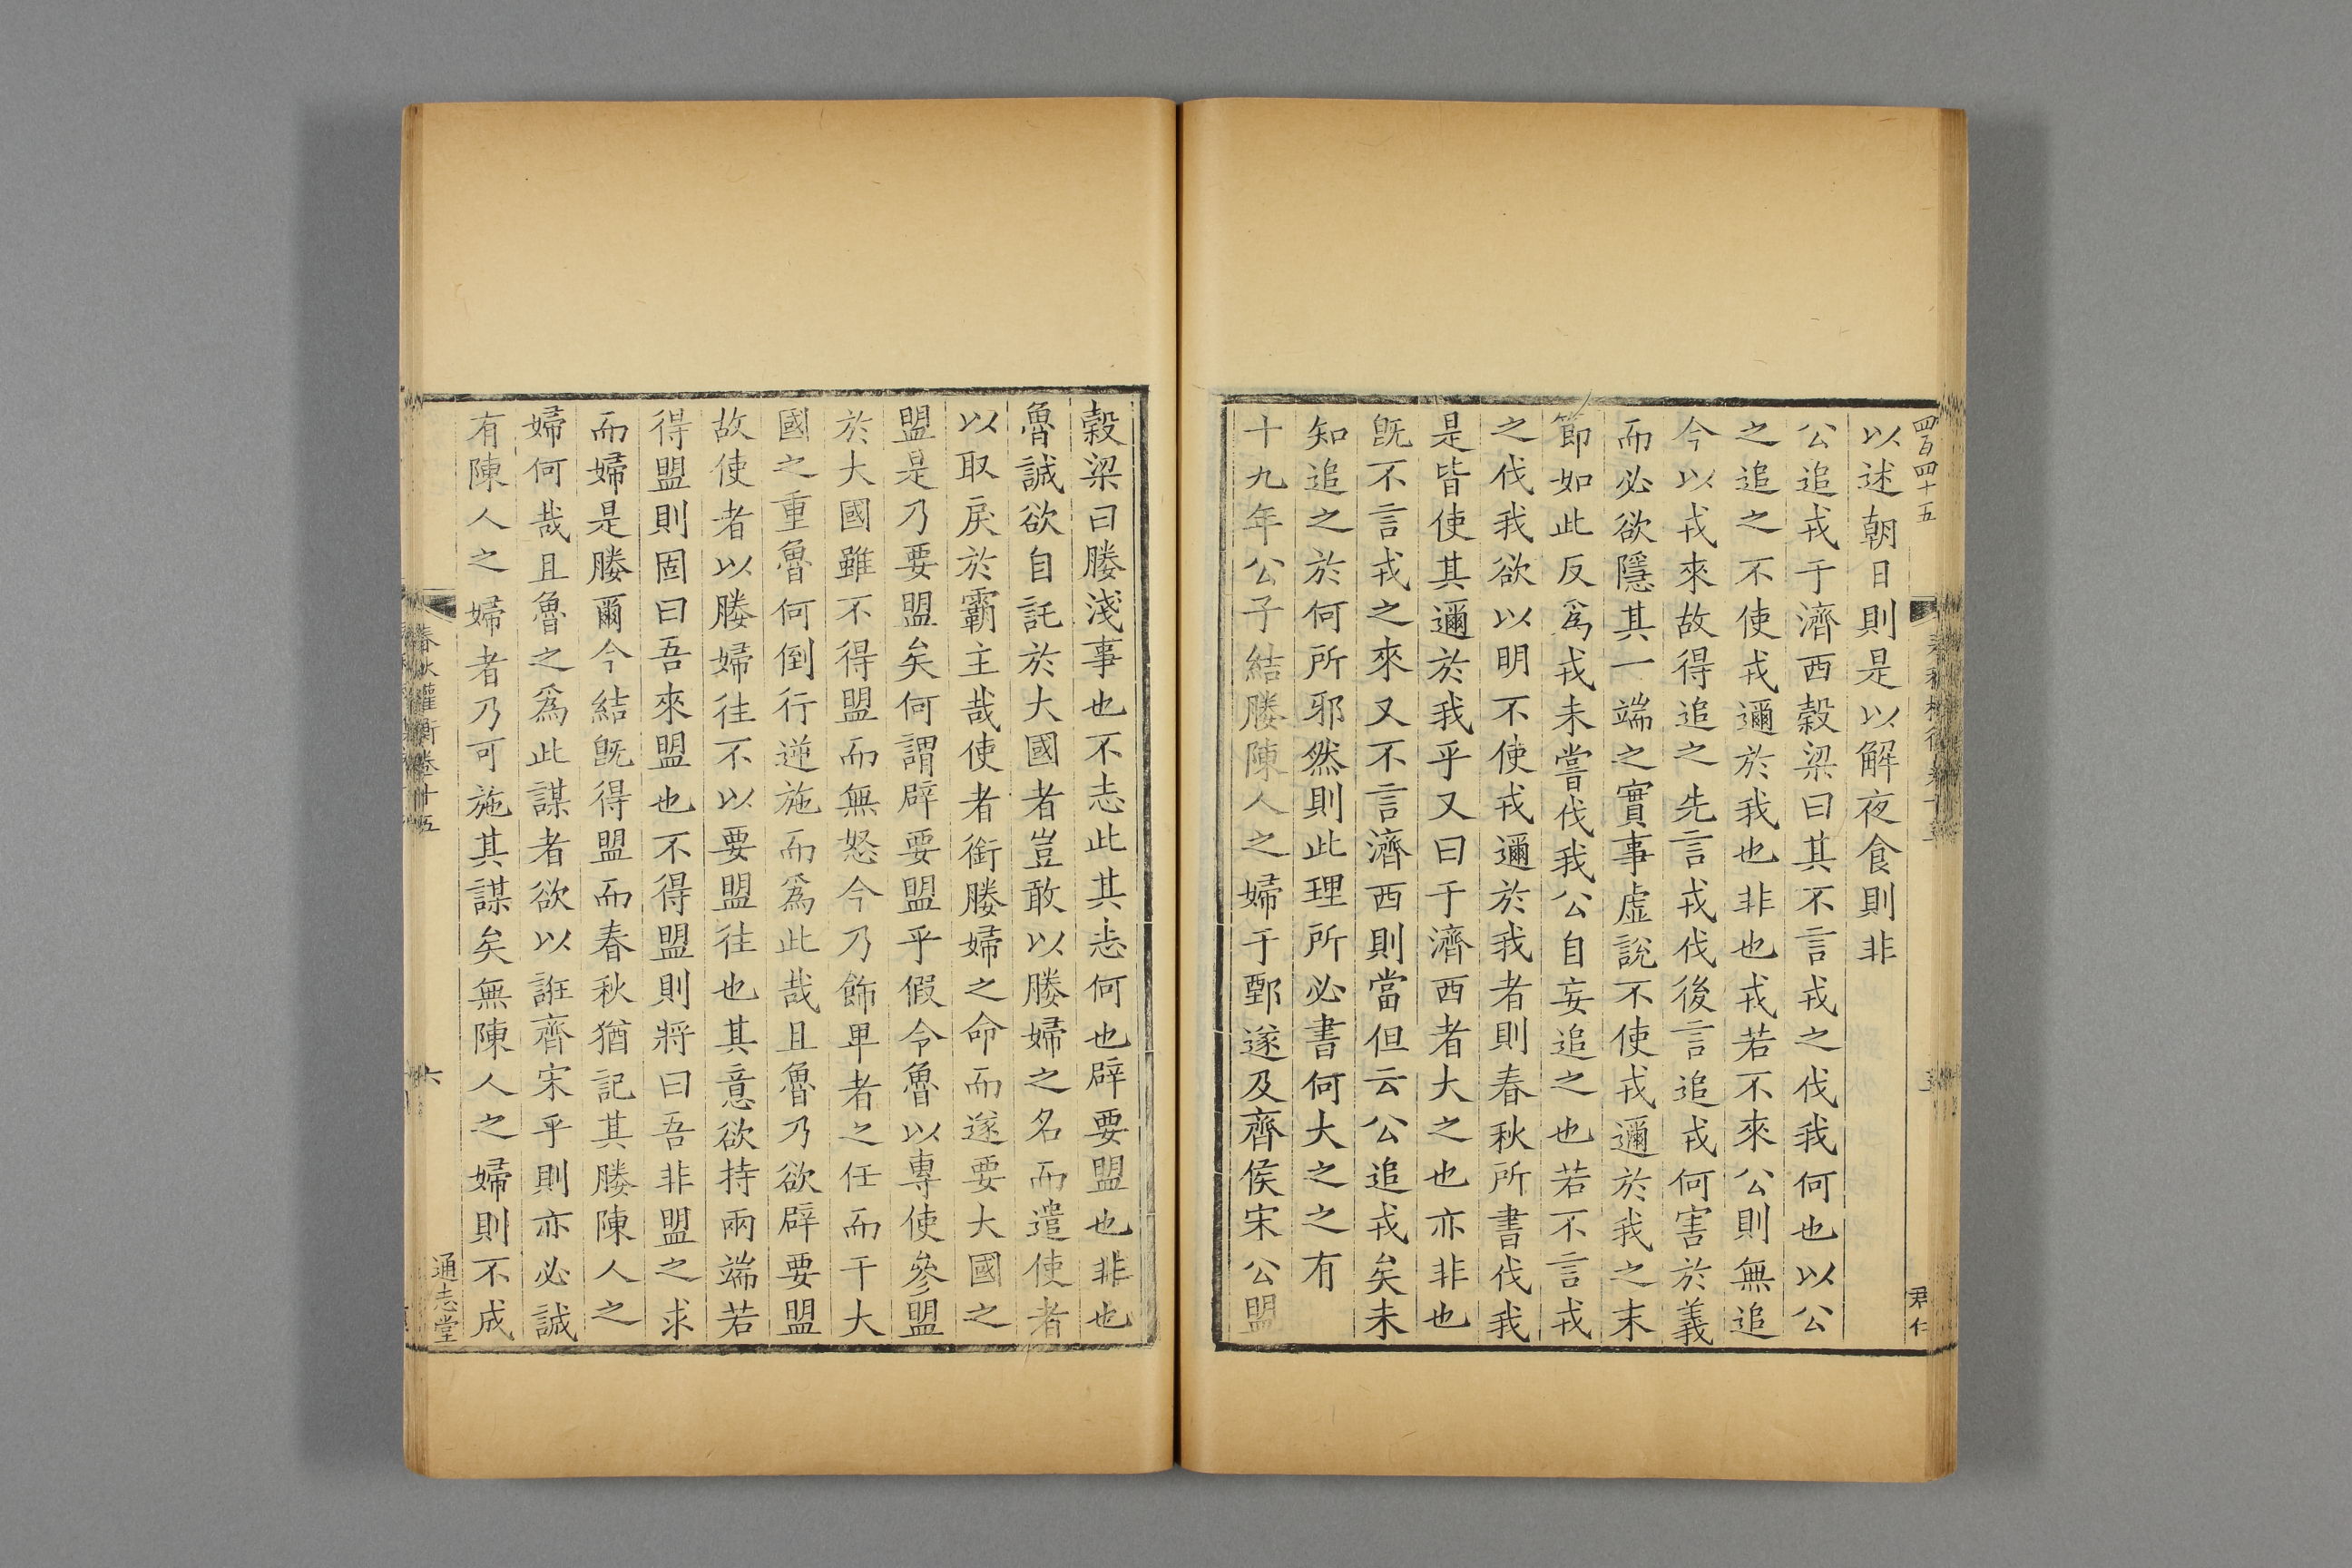 四百四十五
以述朝日則是以解夜食則非
公追戎于濟西穀梁曰其不言戎之伐我何也以公
之追之不使戎邇於我也非也戎若不來公則無追
今以戎來故得追之先言戎伐後言追戎何害於義
而必欲隱其一端之實事虛說不使戎邇於我之末
節如此反爲戎未嘗伐我公自妄追之也若不言戎
之伐我欲以明不使戎邇於我者則春秋所書伐我
是皆使其邇於我乎又曰于濟西者大之也亦非也
旣不言戎之來又不言濟西則當但云公追戎矣未
知追之於何所邪然則此理所必書何大之之有
十九年公子結媵陳人之婦于鄄遂及齊侯宋公盟
君仁
穀梁曰媵淺事也不志此其志何也辟要盟也非也
魯誠欲自託於大國者豈敢以媵婦之名而遣使者
以取戾於霸主哉使者銜媵婦之命而遂要大國之
盟是乃要盟矣何謂辟要盟乎假令魯以專使參盟
於大國雖不得盟而無怒今乃飾卑者之任而干大
國之重魯何倒行逆施而爲此哉且魯乃欲辟要盟
故使者以媵婦往不以要盟往也其意欲持兩端若
得盟則固曰吾來盟也不得盟則將曰吾非盟之求
而婦是媵爾今結旣得盟而春秋猶記其媵陳人之
婦何哉且魯之爲此謀者欲以誑齊宋乎則亦必誠
有陳人之婦者乃可施其謀矣無陳人之婦則不成
春秋權衡卷十五
六
通志堂